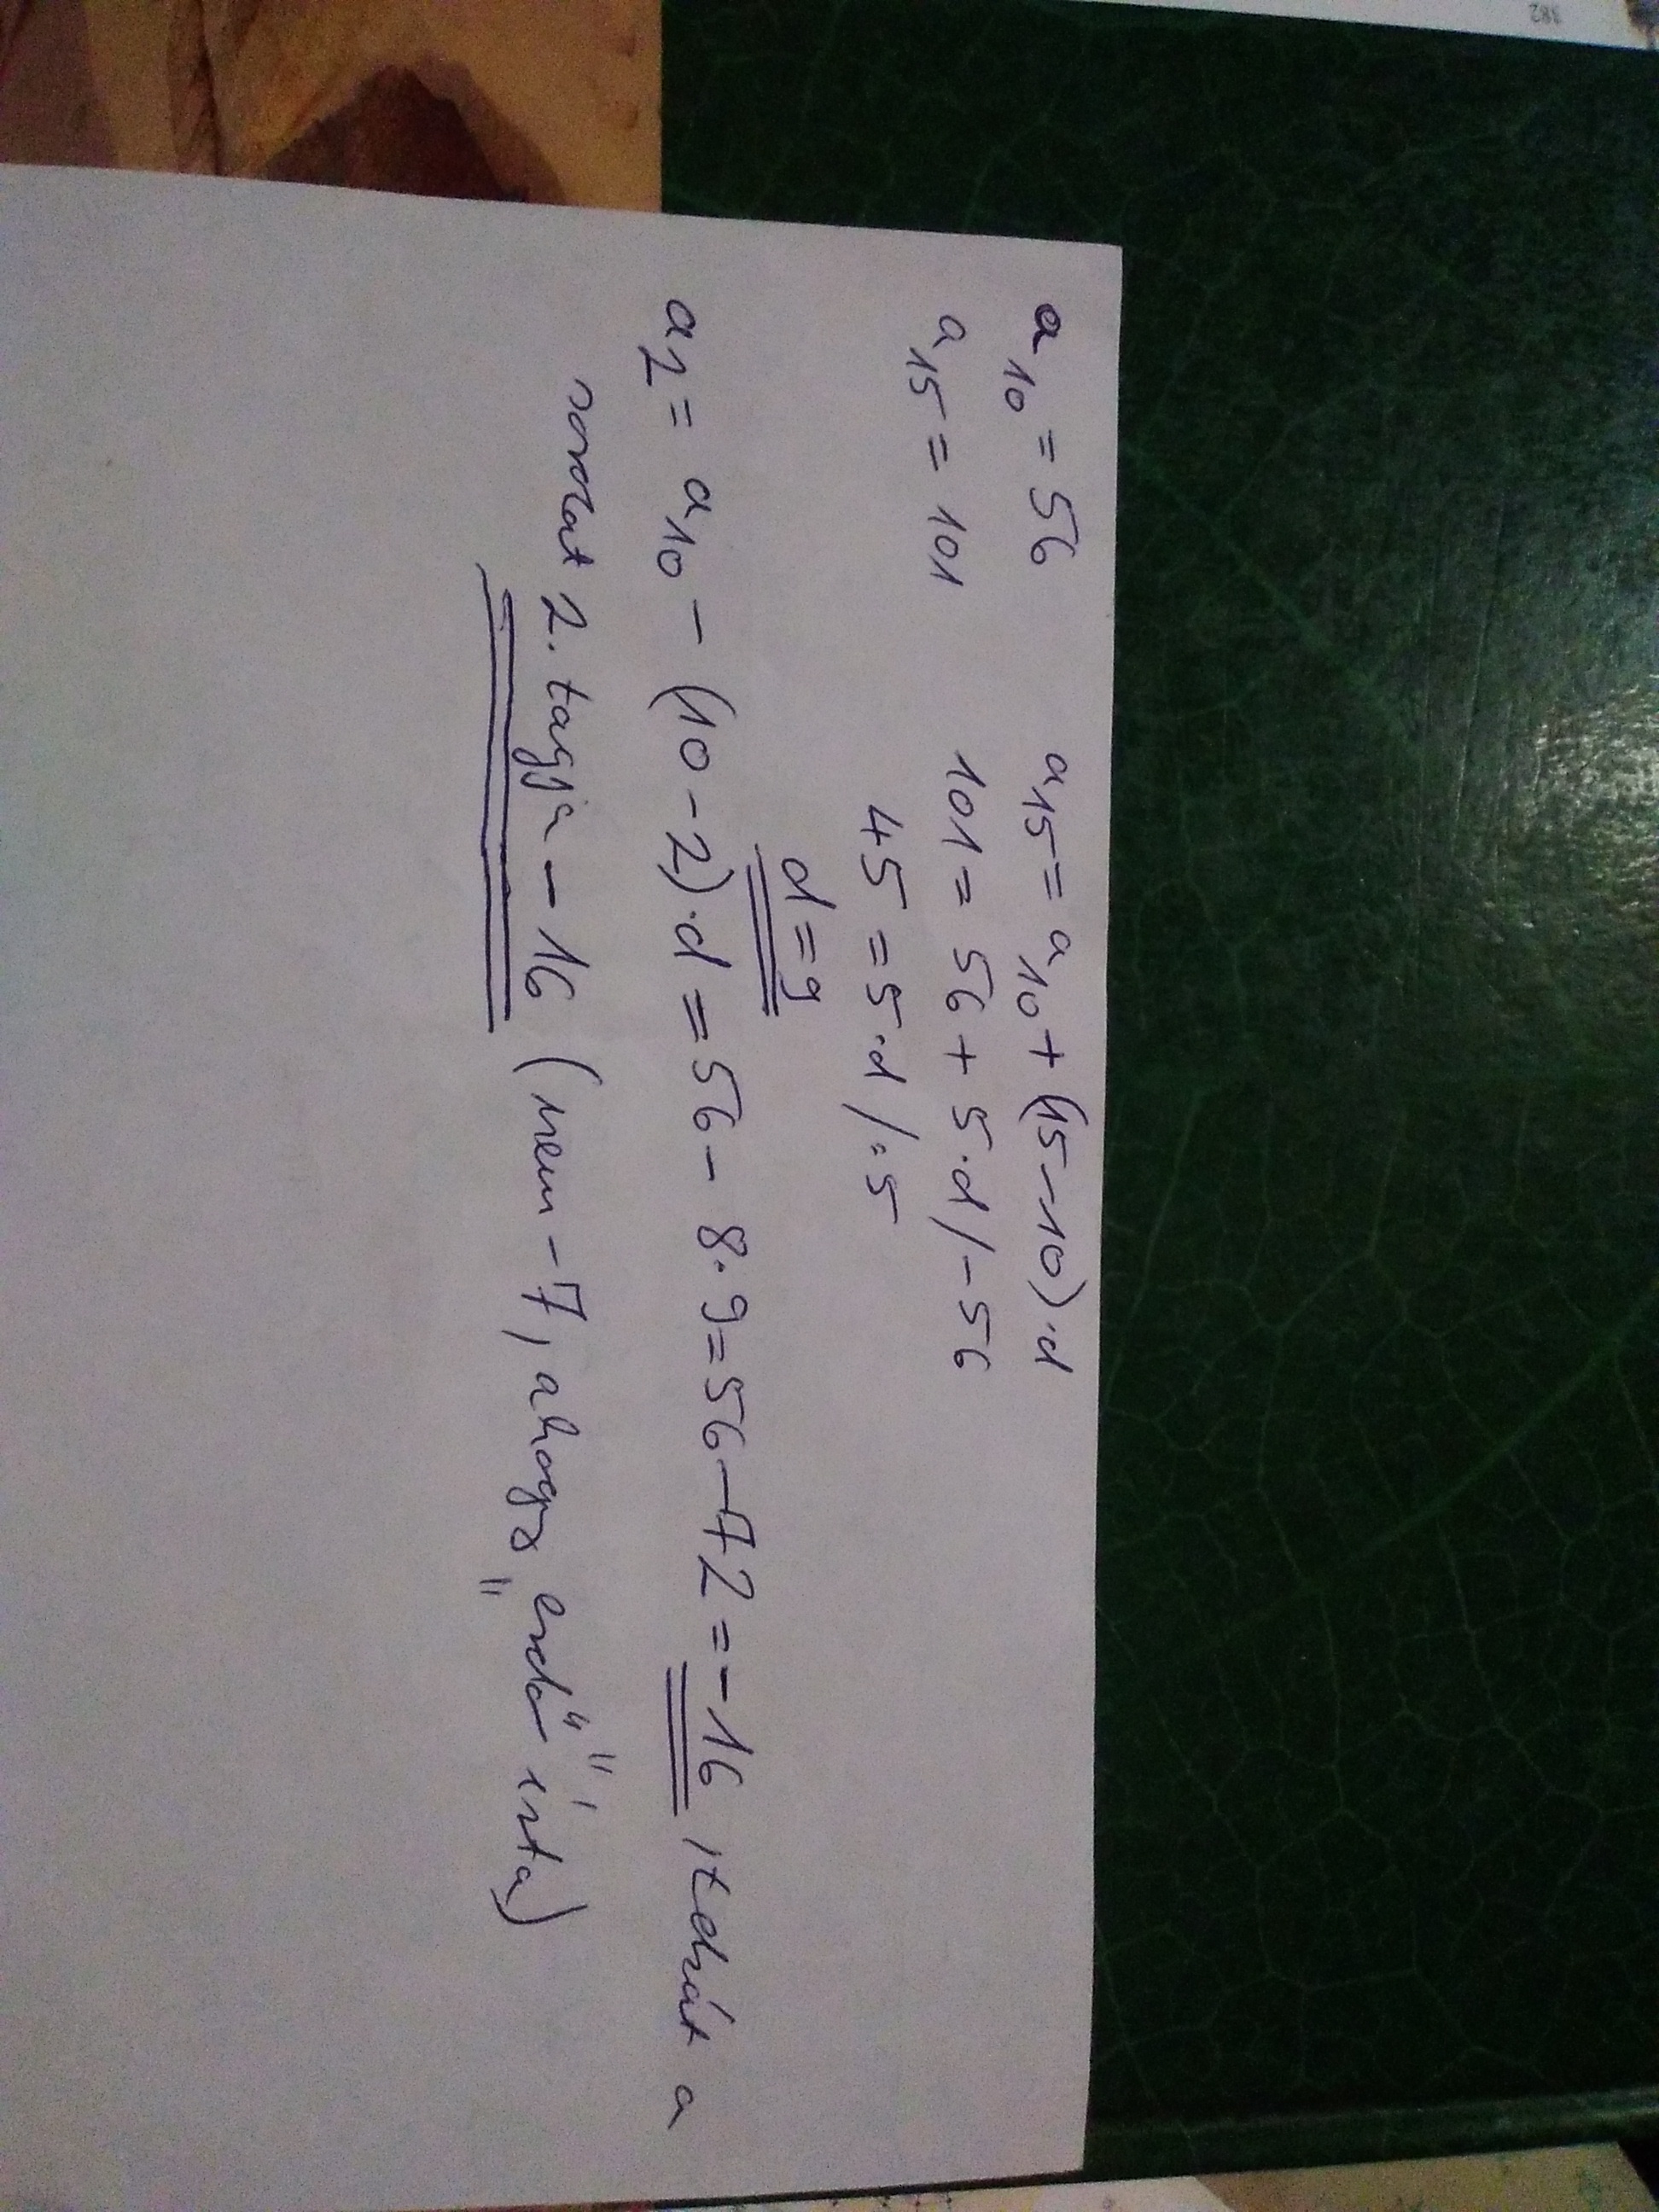 382
a₁₀ = 56
a₁₅ = 101
a₁₅ = a₁₀ + (15-10)·d
101 = 56 + 5·d /-56
45 = 5·d /:5
d = 9
a₂ = a₁₀ - (10-2)·d = 56 - 8·9 = 56 - 72 = -16, tehát a
sorozat 2. tagja -16 (nem -7, ahogy „erdo" írta)